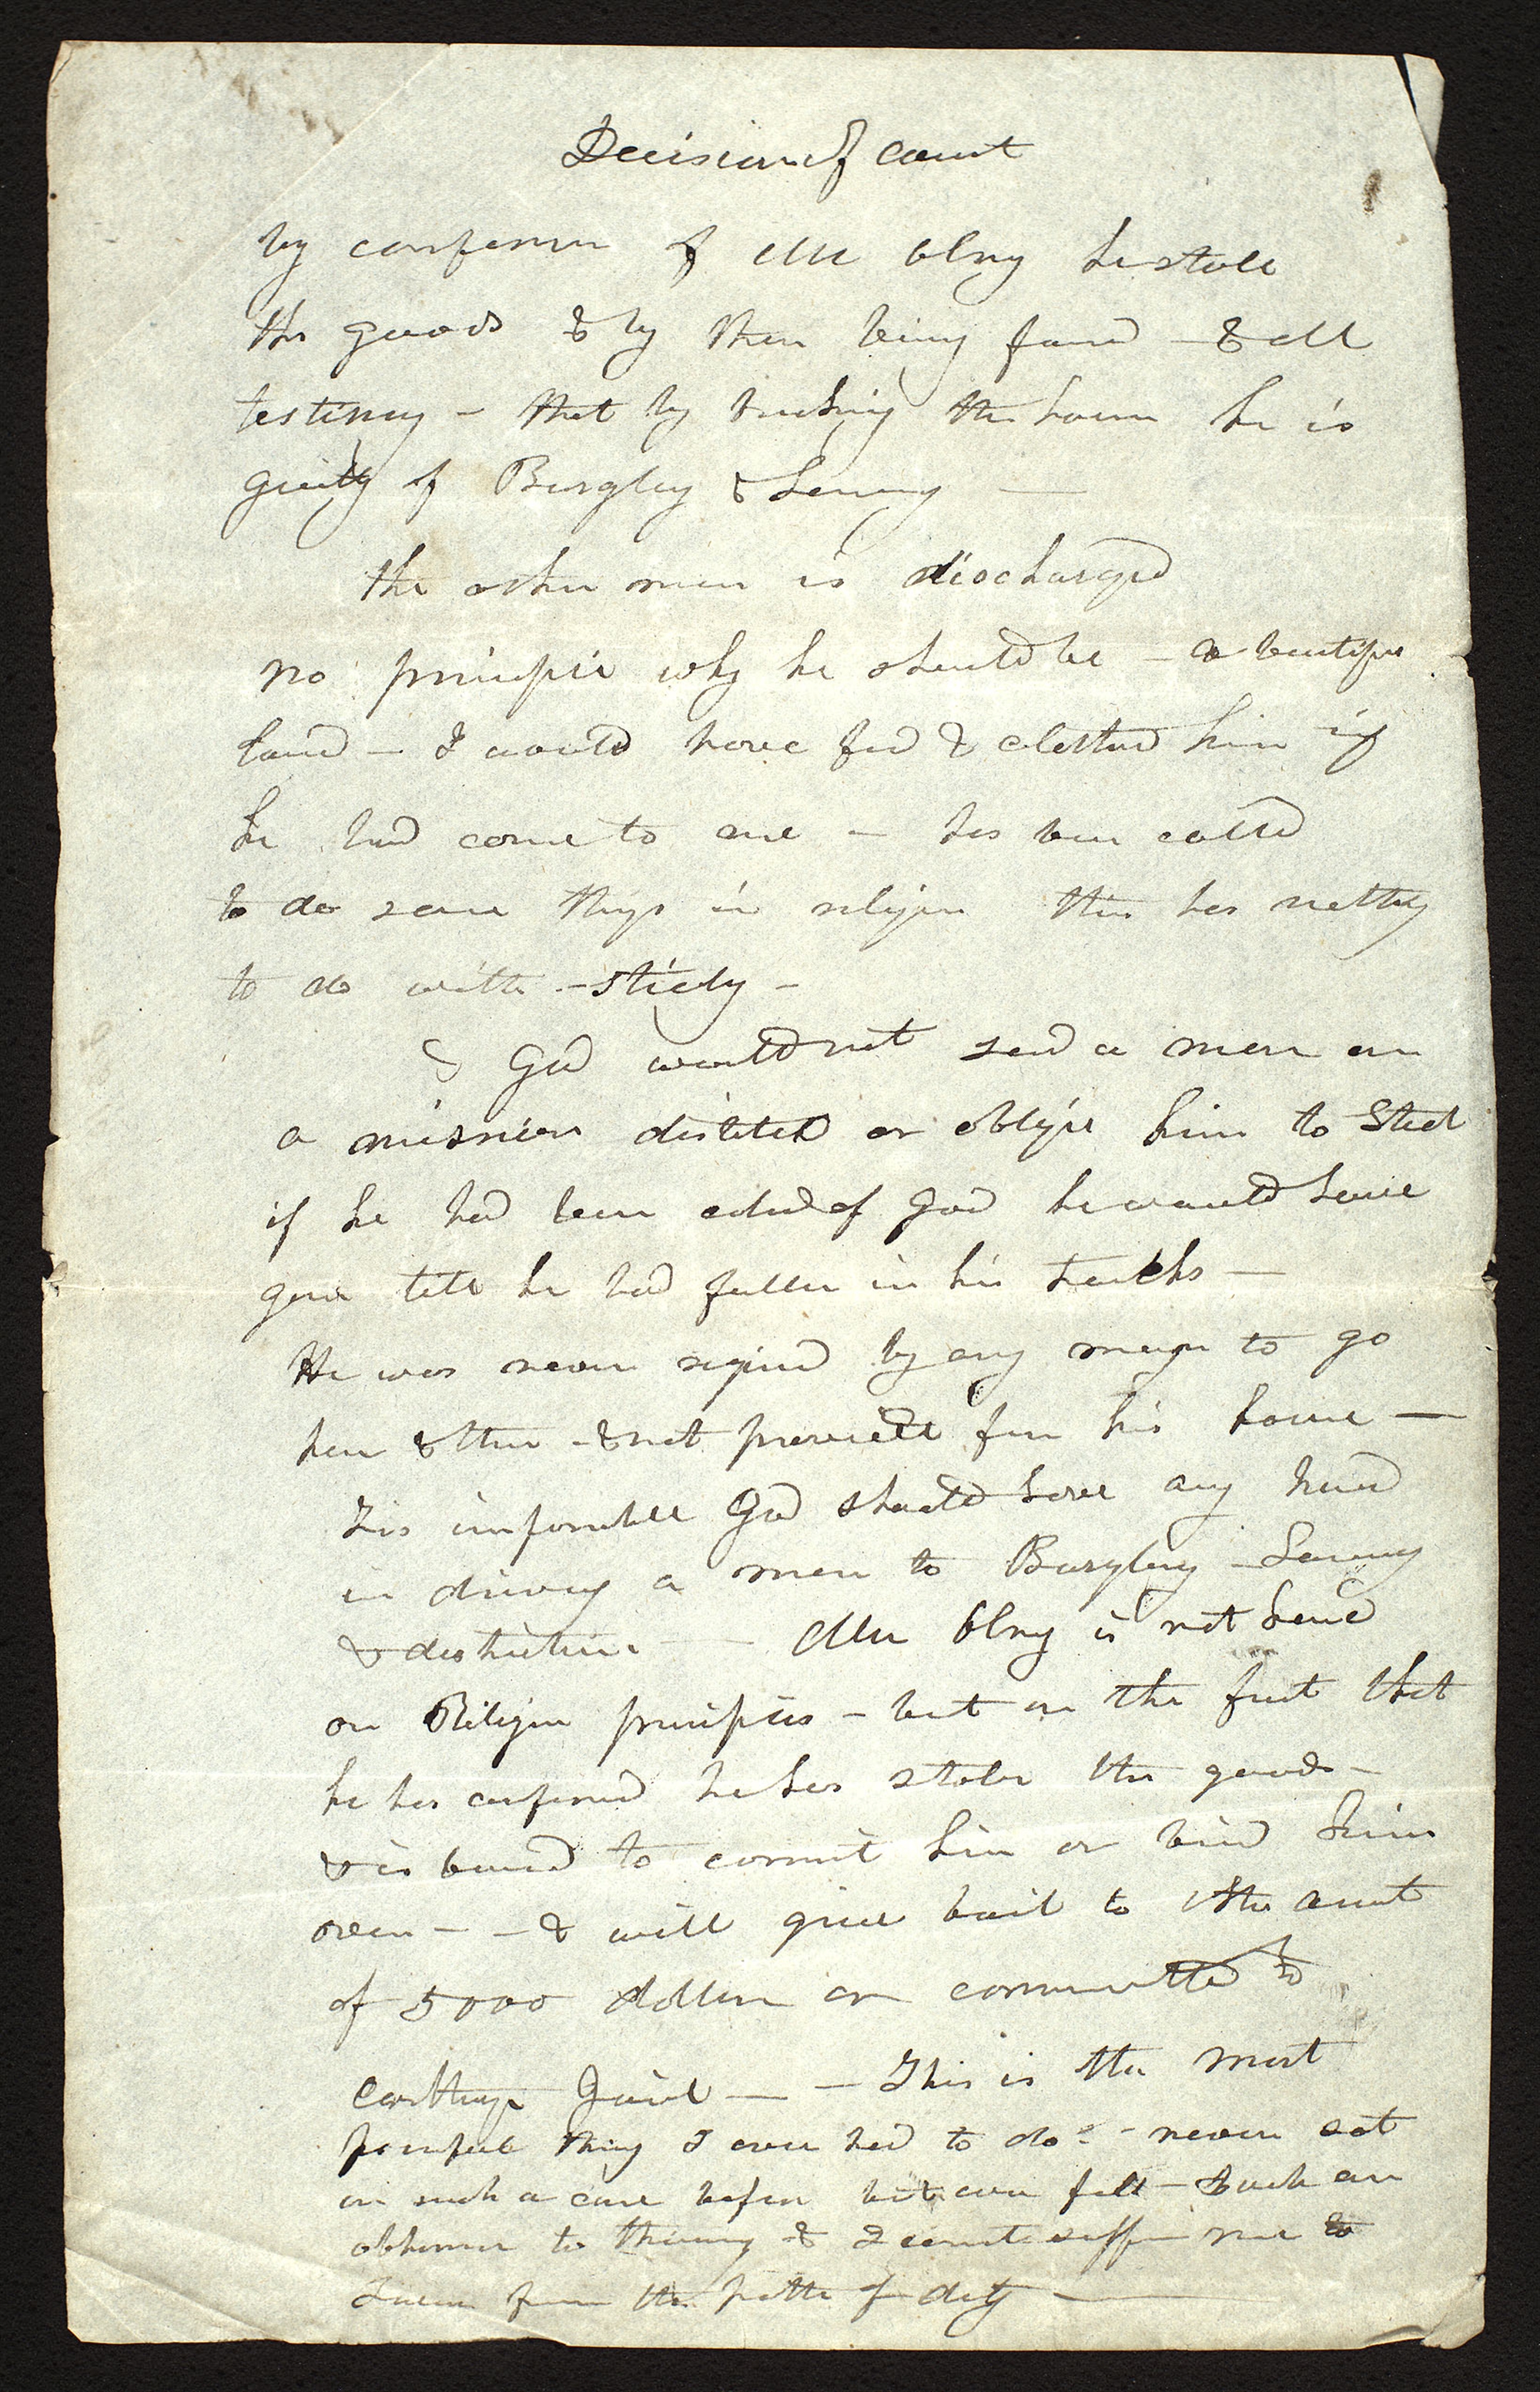 Decision of Court
by confession of Mr Olny he stole
the goods & by them being found - & all
testimny - that by breaking the house he is
guilty of Burgley & Lerceny —
the other man is discharged
no principle why he should be - a beautiful
land - I would have fed & clothed him if
he had come to me - has been called
to do some things in religion this has nothing
to do with - stricly -
& God would not send a man on
a mission distitute or oblige him to steal
if he had been called of God he would have
gone till he had fallen in his tracks —
He was never required by any man to go
here & there - & not provide for his house —
Tis impossible God should have any hand
in driving a man to Burglery - Larceny
& distruction. — Mr Olny is not here
on Religion principles - but on the fact that
he has confessed he has stolen the goods -
& is bound to commit him or bind him
over - - & will give bail to the amt
of 5000 dollars or committed to
Carthage Jail — - This is the most
painful thing I ever had to do - - never sat
on such a case before but ever felt - such an
abhorrence to thieving & I cannot suffer me to
swerve from the path of duty —